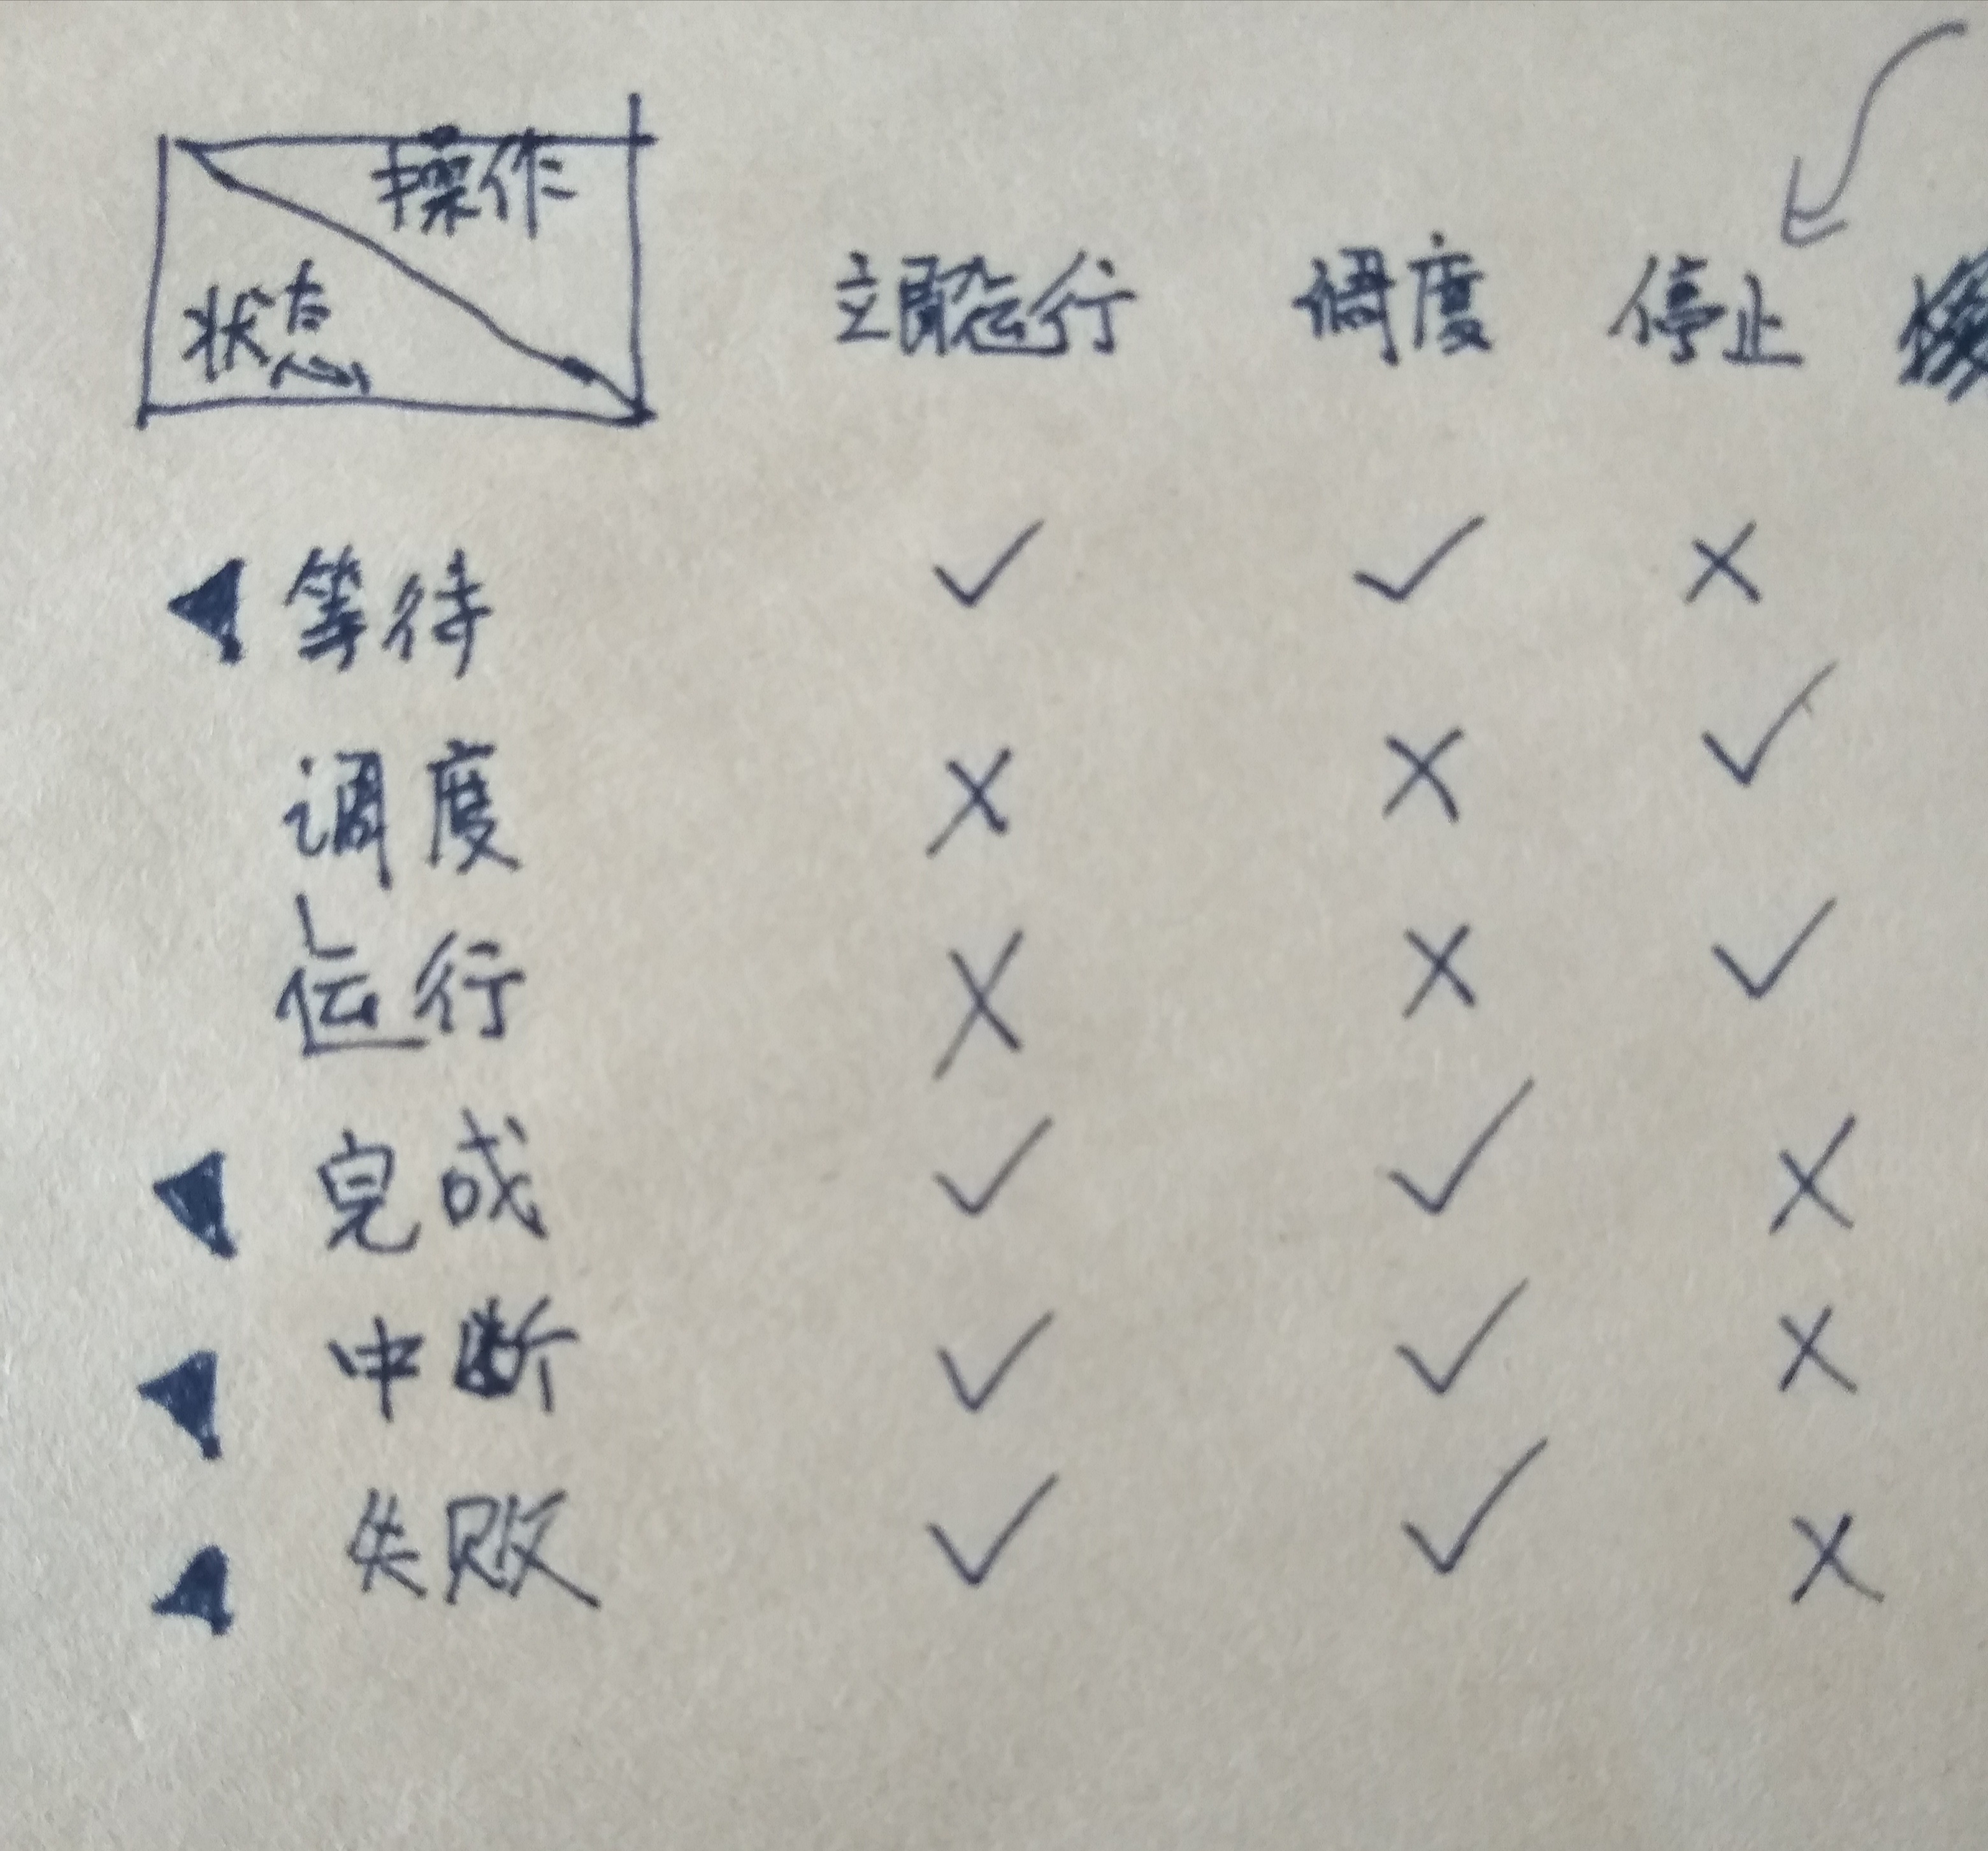 操作
状态
立即运行 调度 停止
等待 ✓ ✓ ×
调度 × × ✓
运行 × × ✓
完成 ✓ ✓ ×
中断 ✓ ✓ ×
失败 ✓ ✓ ×